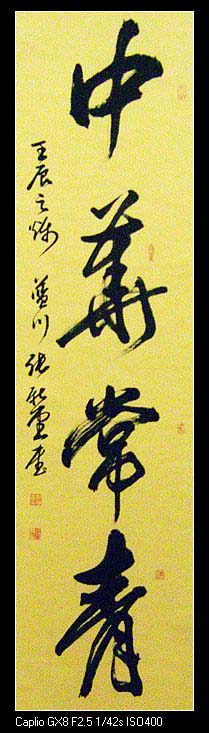 中華常青
壬辰之秋
Caplio GX8 F2.5 1/42s ISO400